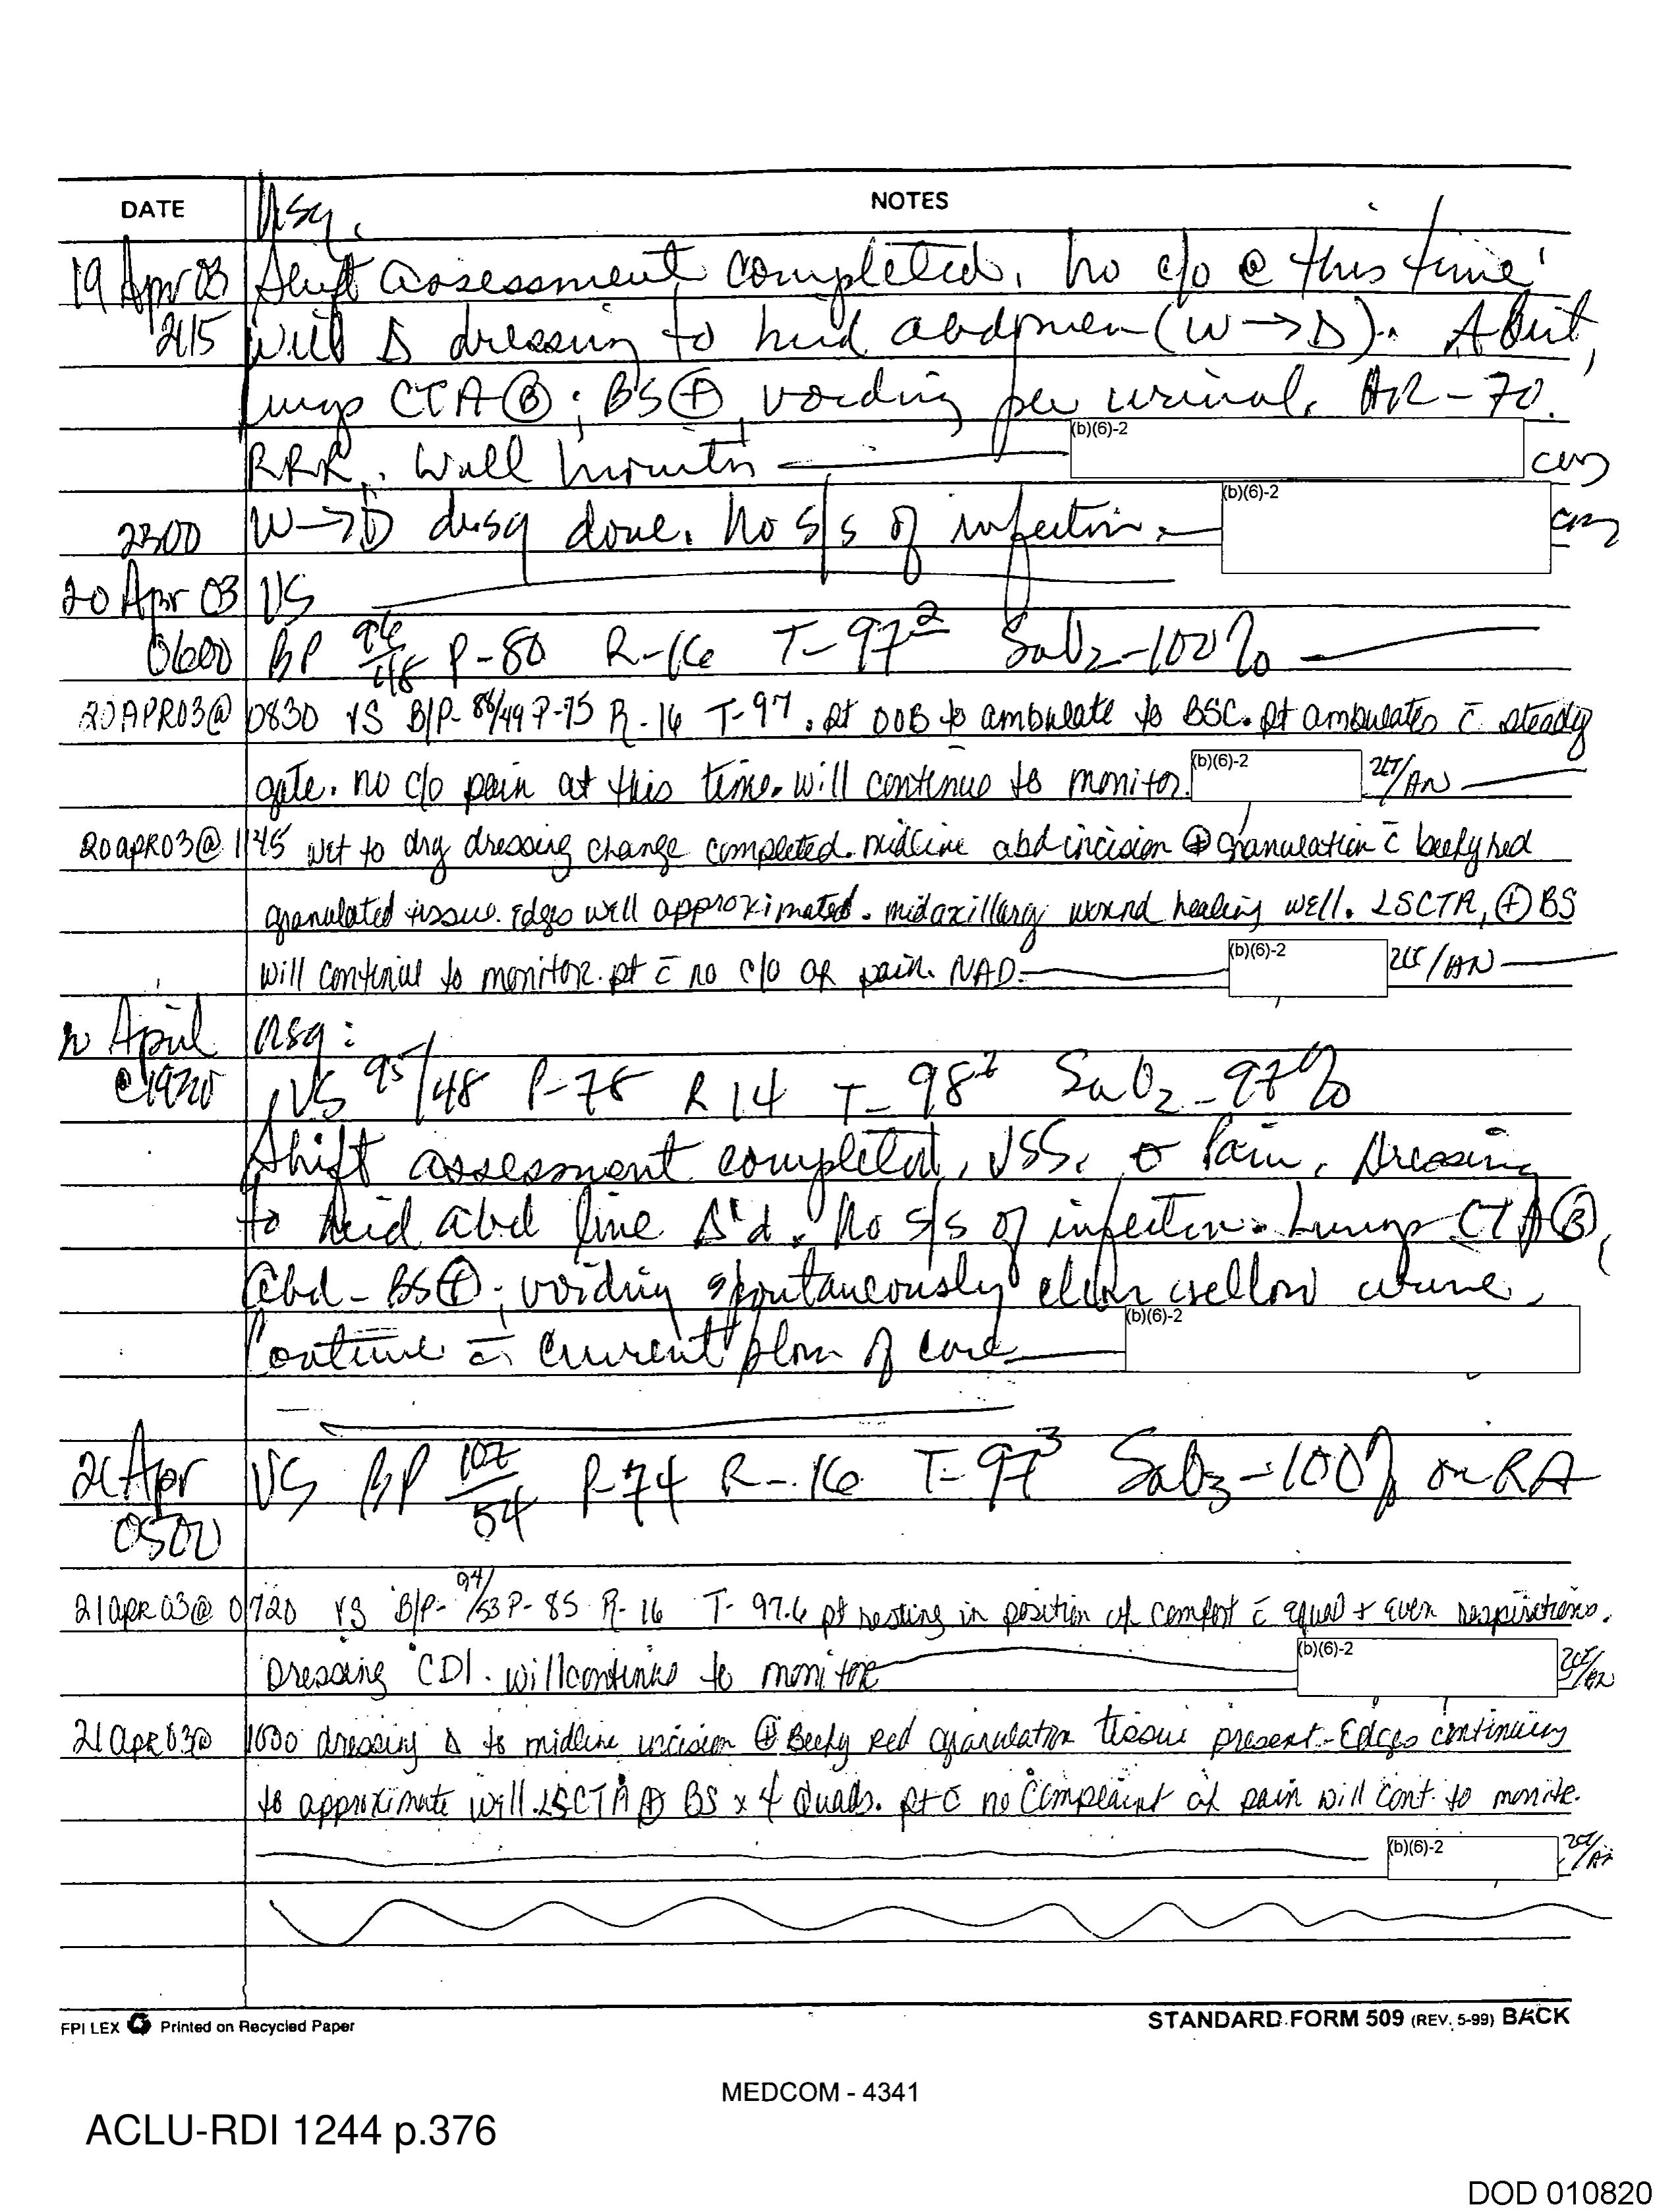 DATE NOTES
Nsg.
19 Apr 03 Shift assessment completed. No c/o @ this time.
2115 Will Δ dressing to mid abdomen (W→D).
Lungs CTA Ⓑ; BS⊕, voiding per urinal. AR-70.
RRR. Will monitor (b)(6)-2
2300 W→D dsg done. No s/s of infection. (b)(6)-2
20 Apr 03 VS
0600 BP 96/48 P-80 R-16 T-97² SaO₂-100%
20APR03@ 0830 VS B/P- 88/49 P-75 R-16 T-97. pt OOB to ambulate to BSC. pt ambulates c̄ steady
gate. no c/o pain at this time. will continue to monitor. (b)(6)-2 2LT/AN
20apR03@ 1145 wet to dry dressing change completed. midline abd incision ⊕ granulation c̄ beefy red
granulated tissue. Edges well approximated. midaxillary wound healing well. LSCTA, ⊕ BS
will continue to monitor. pt c̄ no c/o of pain. NAD. (b)(6)-2 2LT/AN
April Nsg:
VS 95/48 P-78 R 14 T- SaO₂-97%
Shift assessment completed, VSS, o Pain. Dressing
to mid abd line Δ'd. No s/s of infection. Lungs CTA Ⓑ,
Abd - BS⊕; voiding spontaneously clear yellow urine.
Continue c̄ current plan of care (b)(6)-2
21 Apr VS BP 102/54 P-74 R-16 T-97³ SaO₂-100% on RA
0500
21apR03@ 0720 VS B/P- 94/53 P-85 R-16 T-97.6 pt resting in position of comfort c̄ equal + even respirations.
Dressing CDI. will continue to monitor (b)(6)-2 2LT/AN
21apR03@ 1030 dressing Δ to midline incision ⊕ Beefy red granulation tissue present. Edges continuing
to approximate well. LSCTA ⊕ BS x 4 Quads. pt c̄ no complaint of pain will cont. to monitor.
(b)(6)-2 2LT/AN
FPI LEX Printed on Recycled Paper STANDARD FORM 509 (REV. 5-99) BACK
MEDCOM - 4341
ACLU-RDI 1244 p.376
DOD 010820